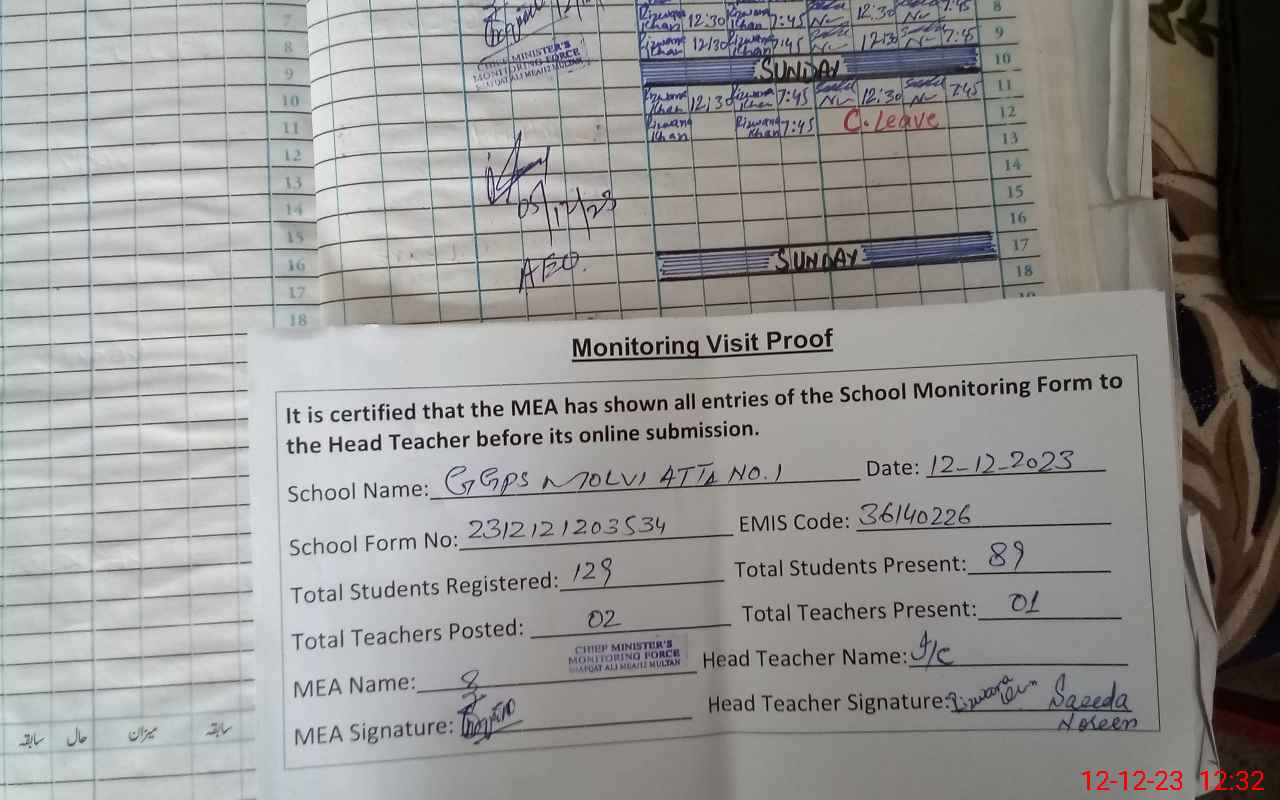 7
8
9
10
11
12
13
14
15
16
17
18
CHIEF MINISTER'S
MONITORING FORCE
SHAFQAT ALI MEA/12 MULTAN
05/12/23
AEO.
Rizwana Khan 12:30 Rizwana Khan 7:45 12:30 7:45 8
Rizwana Khan 12:30 Rizwana Khan 7:45 12:30 7:45 9
SUNDAY 10
Rizwana Khan 12:30 Rizwana Khan 7:45 12:30 7:45 11
Rizwana Khan Rizwana Khan 7:45 C. Leave 12
13
14
15
16
SUNDAY 17
18
Monitoring Visit Proof
It is certified that the MEA has shown all entries of the School Monitoring Form to
the Head Teacher before its online submission.
School Name: GGPS MOLVI ATTA NO.1 Date: 12-12-2023
School Form No: 2312121203534 EMIS Code: 36140226
Total Students Registered: 129 Total Students Present: 89
Total Teachers Posted: 02 Total Teachers Present: 01
CHIEF MINISTER'S
MONITORING FORCE
SHAFQAT ALI MEA/12 MULTAN
MEA Name: Head Teacher Name: I/C
MEA Signature: Head Teacher Signature: Rizwana Saeeda
Noreen
سابقہ حال میزان سابقہ
12-12-23 12:32